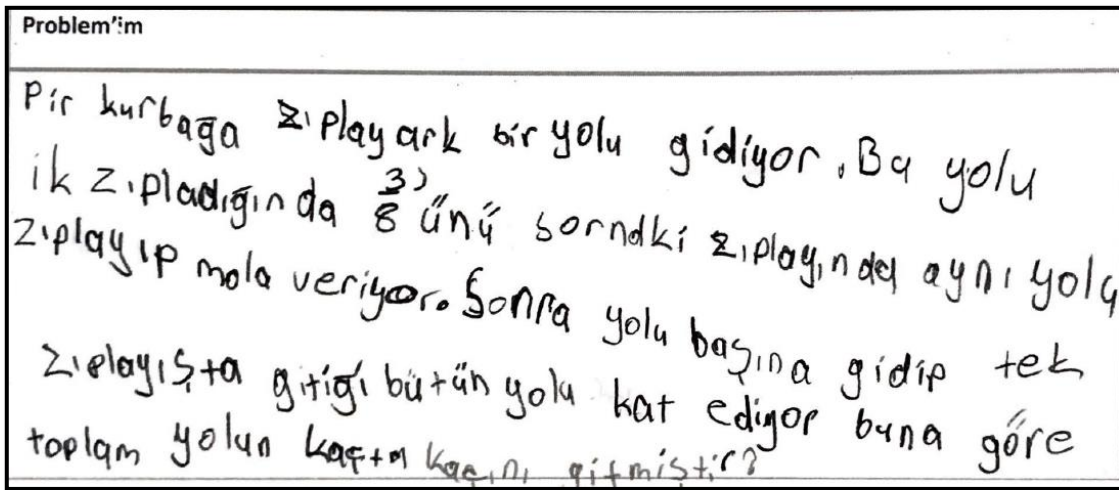 Problem'im
Pir kurbağa zıplayark bir yolu gidiyor. Ba yolu
ik zıpladığında 3/8'ünü sorndki zıplayında aynı yolu
zıplayıp mola veriyor. Sonra yolu başına gidip tek
zıplayışta gitiği bütün yolu kat ediyor buna göre
toplam yolun kaçta kaçını gitmiştir?